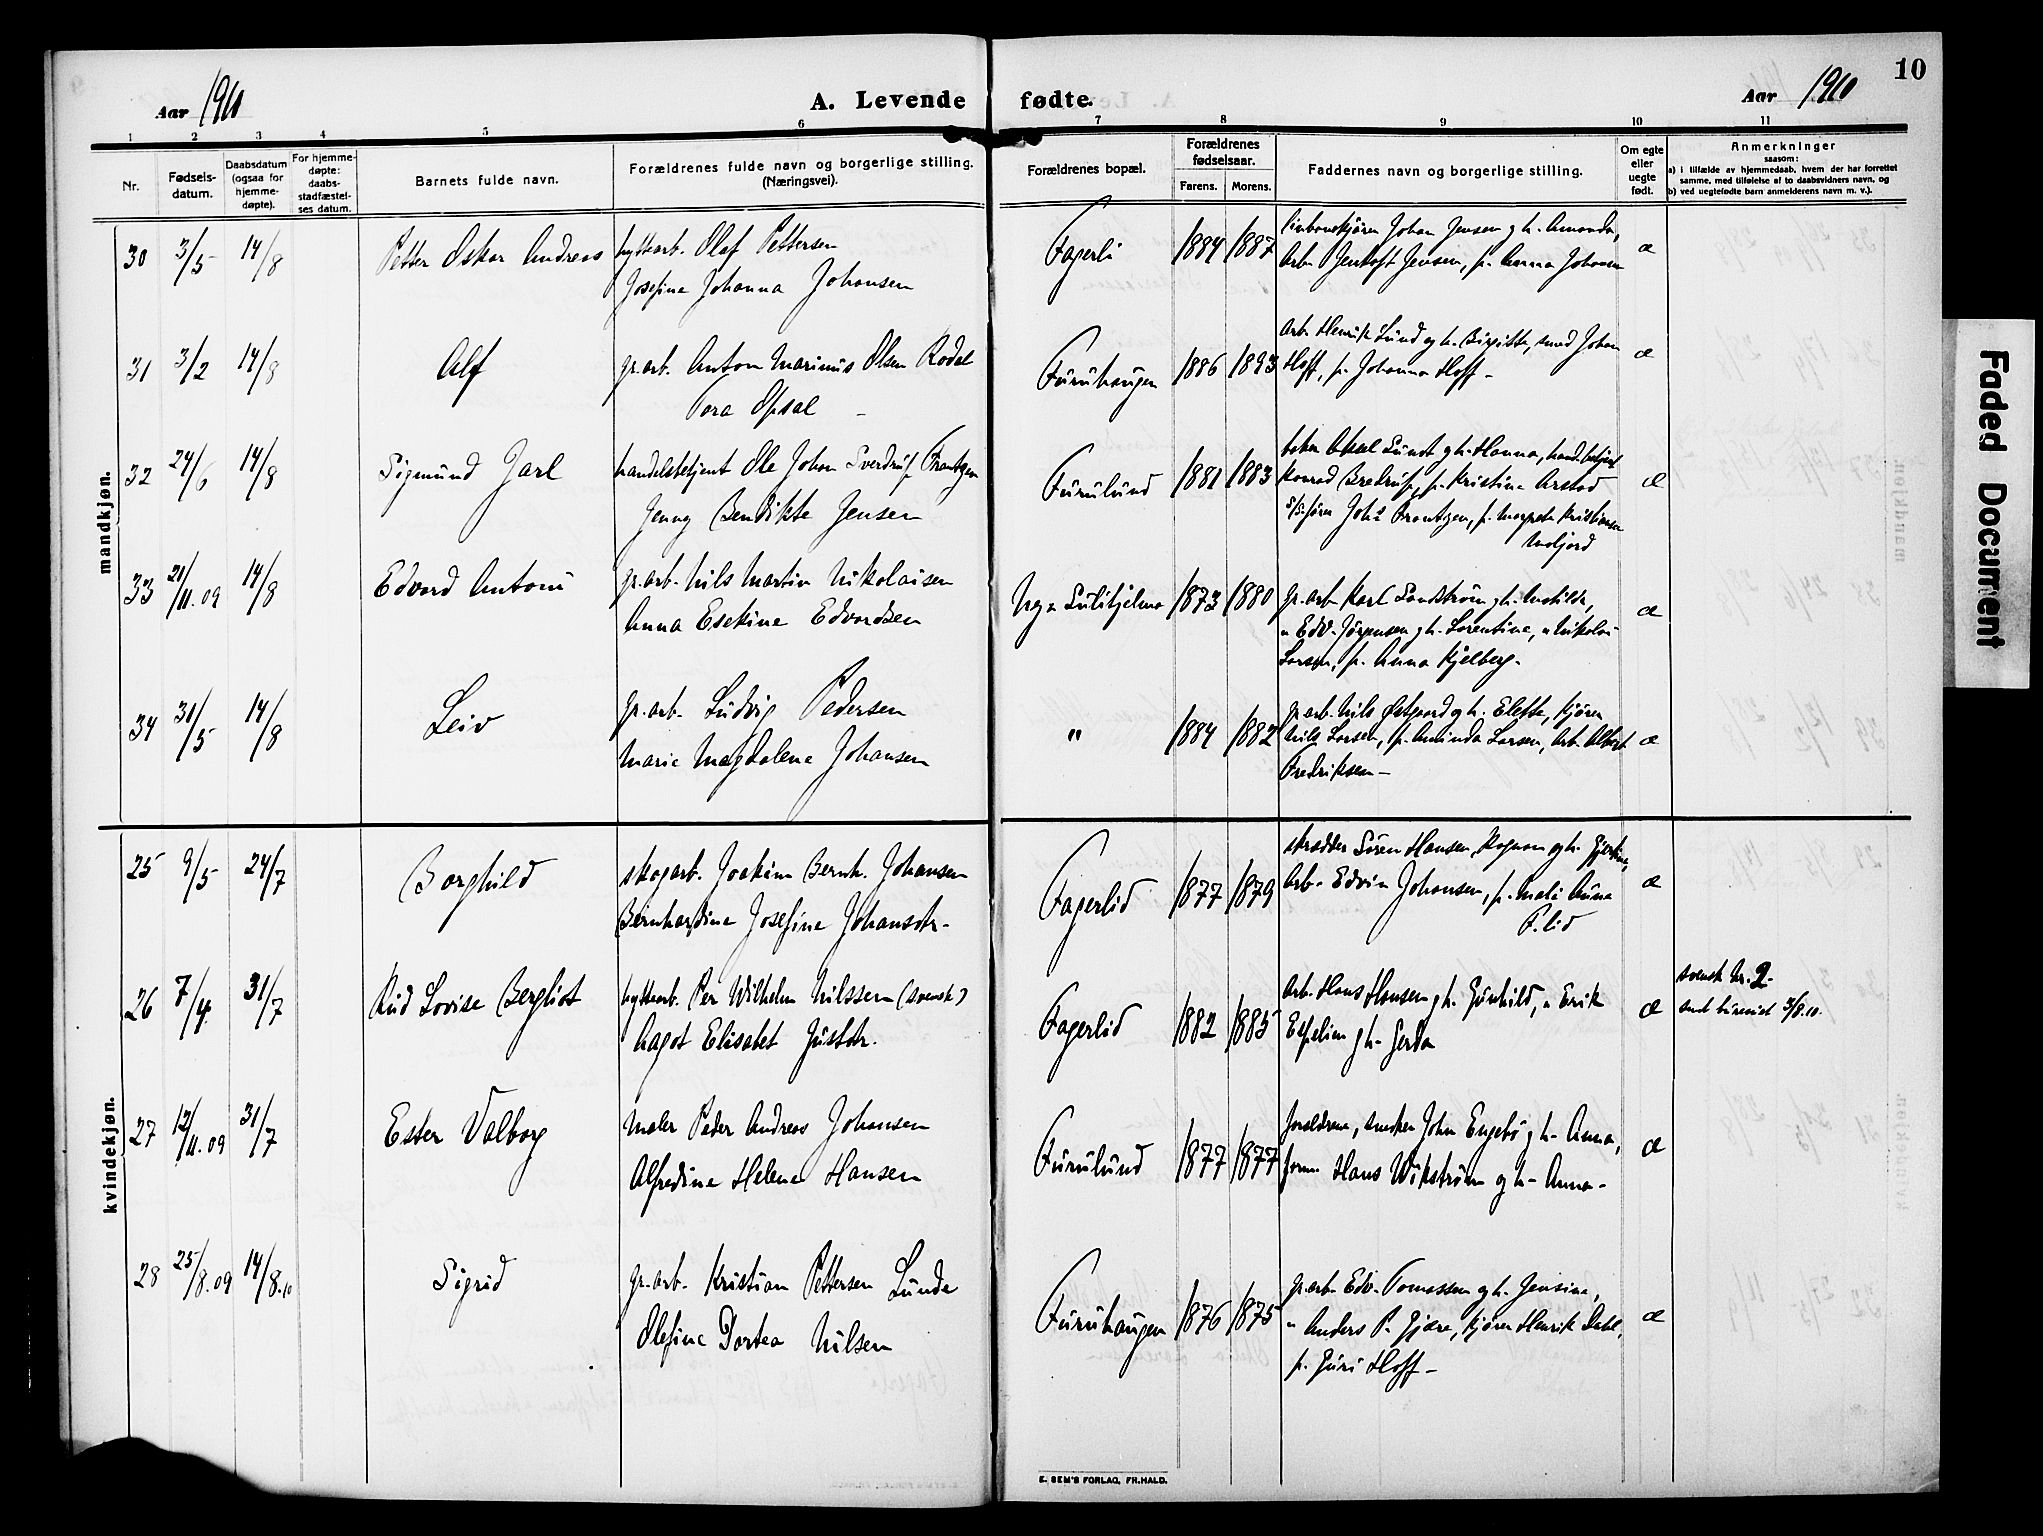 10
Aar 1910
A. Levende fødte.
Aar 1910
1 2 3 4 5 6 7 8 9 10 11
Nr.
Fødsels-
datum.
Daabsdatum
(ogsaa for
hjemme-
døpte).
For hjemme-
døpte:
daabs-
stadfæstel-
ses datum.
Barnets fulde navn.
Forældrenes fulde navn og borgerlige stilling.
(Næringsvei).
Forældrenes bopæl.
Forældrenes
fødselsaar.
Farens. Morens.
Faddernes navn og borgerlige stilling.
Om egte
eller
uegte
født.
Anmerkninger
saasom:
a) i tilfælde av hjemmedaab, hvem der har forrettet
samme, med tilføielse af to daabsvidners navn, og
b) ved uegtefødte barn anmelderens navn m. v.).
mandkjøn.
30 3/5 14/8 Petter Oskar Andreas hyttearb. Olaf Pettersen
Josefine Johanna Johansen
Fagerli 1884 1887
Johan Jensen g h. Amanda,
Arb. Gentoft Jensen, p. Anna Johansen
æ
31 3/2 14/8 Alf gr.arb. Anton Marinus Olsen Rødal
Tora Opsal
Furuhaugen 1886 1893
Arb. Henrik Lund og h. Birgitte, smed Johan
Hoff, p. Johanna Hoff
æ
32 24/6 14/8 Sigmund Jarl handelsbetjent Ole Johan Sverdrup Frantzen
Jenny Bendikte Jensen
Furulund 1881 1883
Aksel Lundt g h. Hanna, hand.betjent
Konrad Bredrup, p. Kristine Arstad
Frantzen, p. Kristiansen
æ
33 21/11.09 14/8 Edvard Antoni gr.arb. Nils Martin Nikolaisen
Anna Esekine Edvardsen
Ny-Sulitjelma 1873 1880
gr.arb. Karl Sandstrøm g h. Matilde,
" Edv. Jørgensen g h. Lorentine, " Nikolai
Larsen, p. Anna Kjelberg.
æ
34 31/5 14/8 Leiv gr.arb. Ludvig Pedersen
Marie Magdalene Johansen
" 1884 1882
gr.arb. Nils Østgaard og h. Elette, kjører
Nils Larsen, p. Aminda Larsen, Arb. Albert
Fredriksen
æ
kvindekjøn.
25 9/5 24/7 Borghild skogarb. Joakim Bernh. Johansen
Bernhardine Josefine Johansdtr.
Fagerlid 1877 1879
skrædder Søren Hansen, Rognan og h. Gjertine,
Arb. Edvin Johansen, p. Anna
F.lid
æ
26 7/4. 31/7 Rud Lovise Bergliot hyttearb. Per Wilhelm Nilssen (svensk)
Hagot Elisabet Justdtr.
Fagerlid 1882 1885
Arb. Hans Hansen g h. Gunhild, " Erik
Espelien g h. Gerda
æ
svensk nr. 2.
3/8.10.
27 12/11.09 31/7 Ester Valborg Maler Peder Andreas Johansen
Alfredine Helene Hansen
Furulund 1877 1877
forældrene, snekker John Engebø g h. Anna,
form. Hans Wikstrøm og h. Anna
æ
28 25/8.09 14/8.10 Sigrid gr.arb. Kristian Pettersen Lunde
Olefine Dortea Nilsen
Furuhaugen 1876 1875
gr.arb. Edv. Tomassen g h. Jensine,
" Anders P. Gjære, kjører Henrik Dahl,
p. Guri Hoff
æ
E. SEM'S FORLAG, FR.HALD.
Faded Document